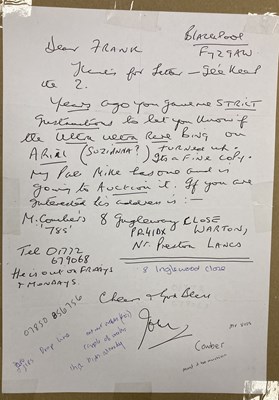 BLACKPOOL
Dear FRANK
FY2 9AW
Thanks for Letter — Gee Head
the 2.
Years ago you gave me STRICT
Instructions to let you know if
the Ultra Ultra Rare Bing on
ARIEL (SUZIANNA?) turned up.
Its a fine copy.
My Pal Mike has one and is
going to Auction it. If you are
interested his address is :—
M. Comber's 8 Ingleway CLOSE
'78s' PR4 1DX WARTON,
Nr. Preston LANCS
Tel 01772
679068
8 Inglewood Close
He is out on FRIDAYS
& MONDAYS
Cheers & God Bless
07850 856756
Drop Line
John
Comber